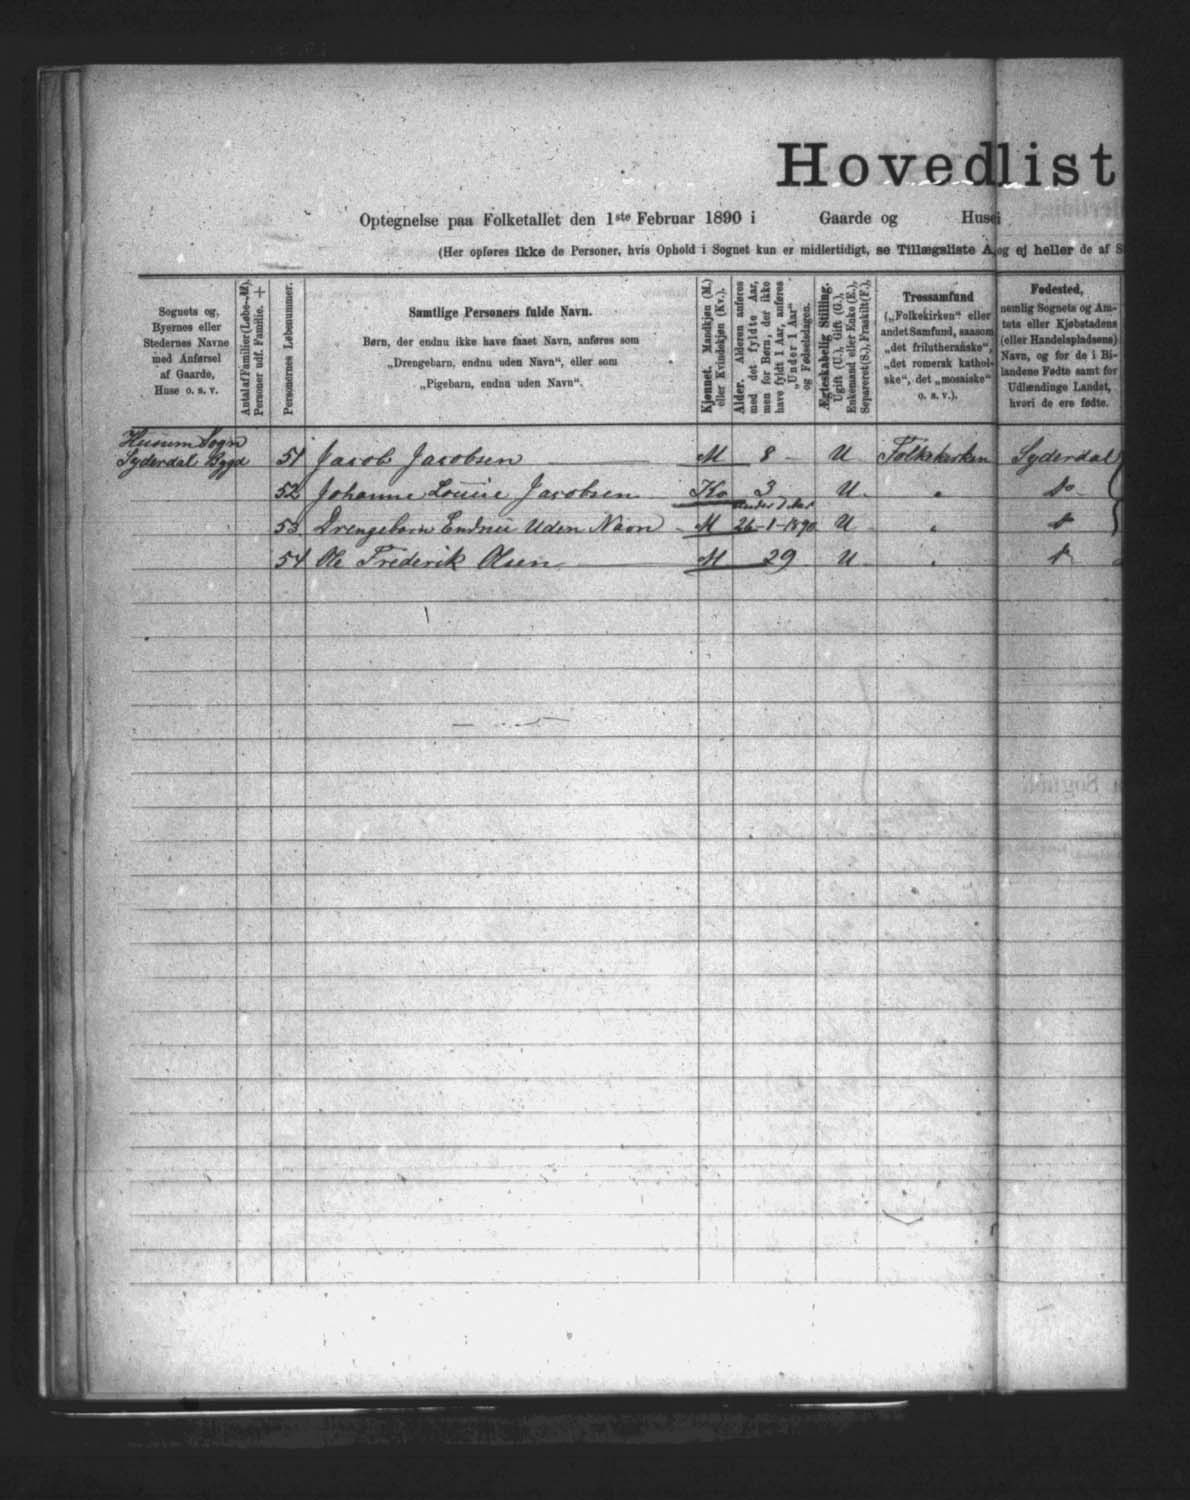 Hovedlist
Optegnelse paa Folketallet den 1ste Februar 1890 i Gaarde og Huse i
(Her opføres ikke de Personer, hvis Ophold i Sognet kun er midlertidigt, se Tillægsliste A, og ej heller de af S
Sognets og,
Byernes eller
Stedernes Navne
med Anførsel
af Gaarde,
Huse o. s. v.
Antal af Familier (Løbe-№).
Personer udf. Familie. +
Personernes Løbenummer.
Samtlige Personers fulde Navn.
Børn, der endnu ikke have faaet Navn, anføres som
„Drengebarn, endnu uden Navn“, eller som
„Pigebarn, endnu uden Navn“.
Kjønnet. Mandkjøn (M.)
eller Kvindekjøn (Kv.).
Alder. Alderen anføres
med det fyldte Aar,
men for Børn, der ikke
have fyldt 1 Aar, anføres
„Under 1 Aar“
og Fødselsdagen.
Ægteskabelig Stilling.
Ugift (U.), Gift (G.),
Enkemand eller Enke (E.),
Separeret (S.), Fraskilt (F.).
Trossamfund
(„Folkekirken“ eller
andet Samfund, saasom
„det frilutherske“,
„det romersk katholske“, det „mosaiske“
o. s. v.).
Fødested,
nemlig Sognets og Amtets eller Kjøbstadens
(eller Handelspladsens)
Navn, og for de i Bilandene Fødte samt for
Udlændinge Landet,
hvori de ere fødte.
Husum Sogn
Syderdal Bygd 51 Jacob Jacobsen M 8 U Folkekirken Syderdal
52 Johanne Louise Jacobsen Kv 3 U „ do
53 Drengebarn Endnu Uden Navn M under 1 Aar 26-1-1890 U „
54 Ole Frederik Olsen M 29 U „